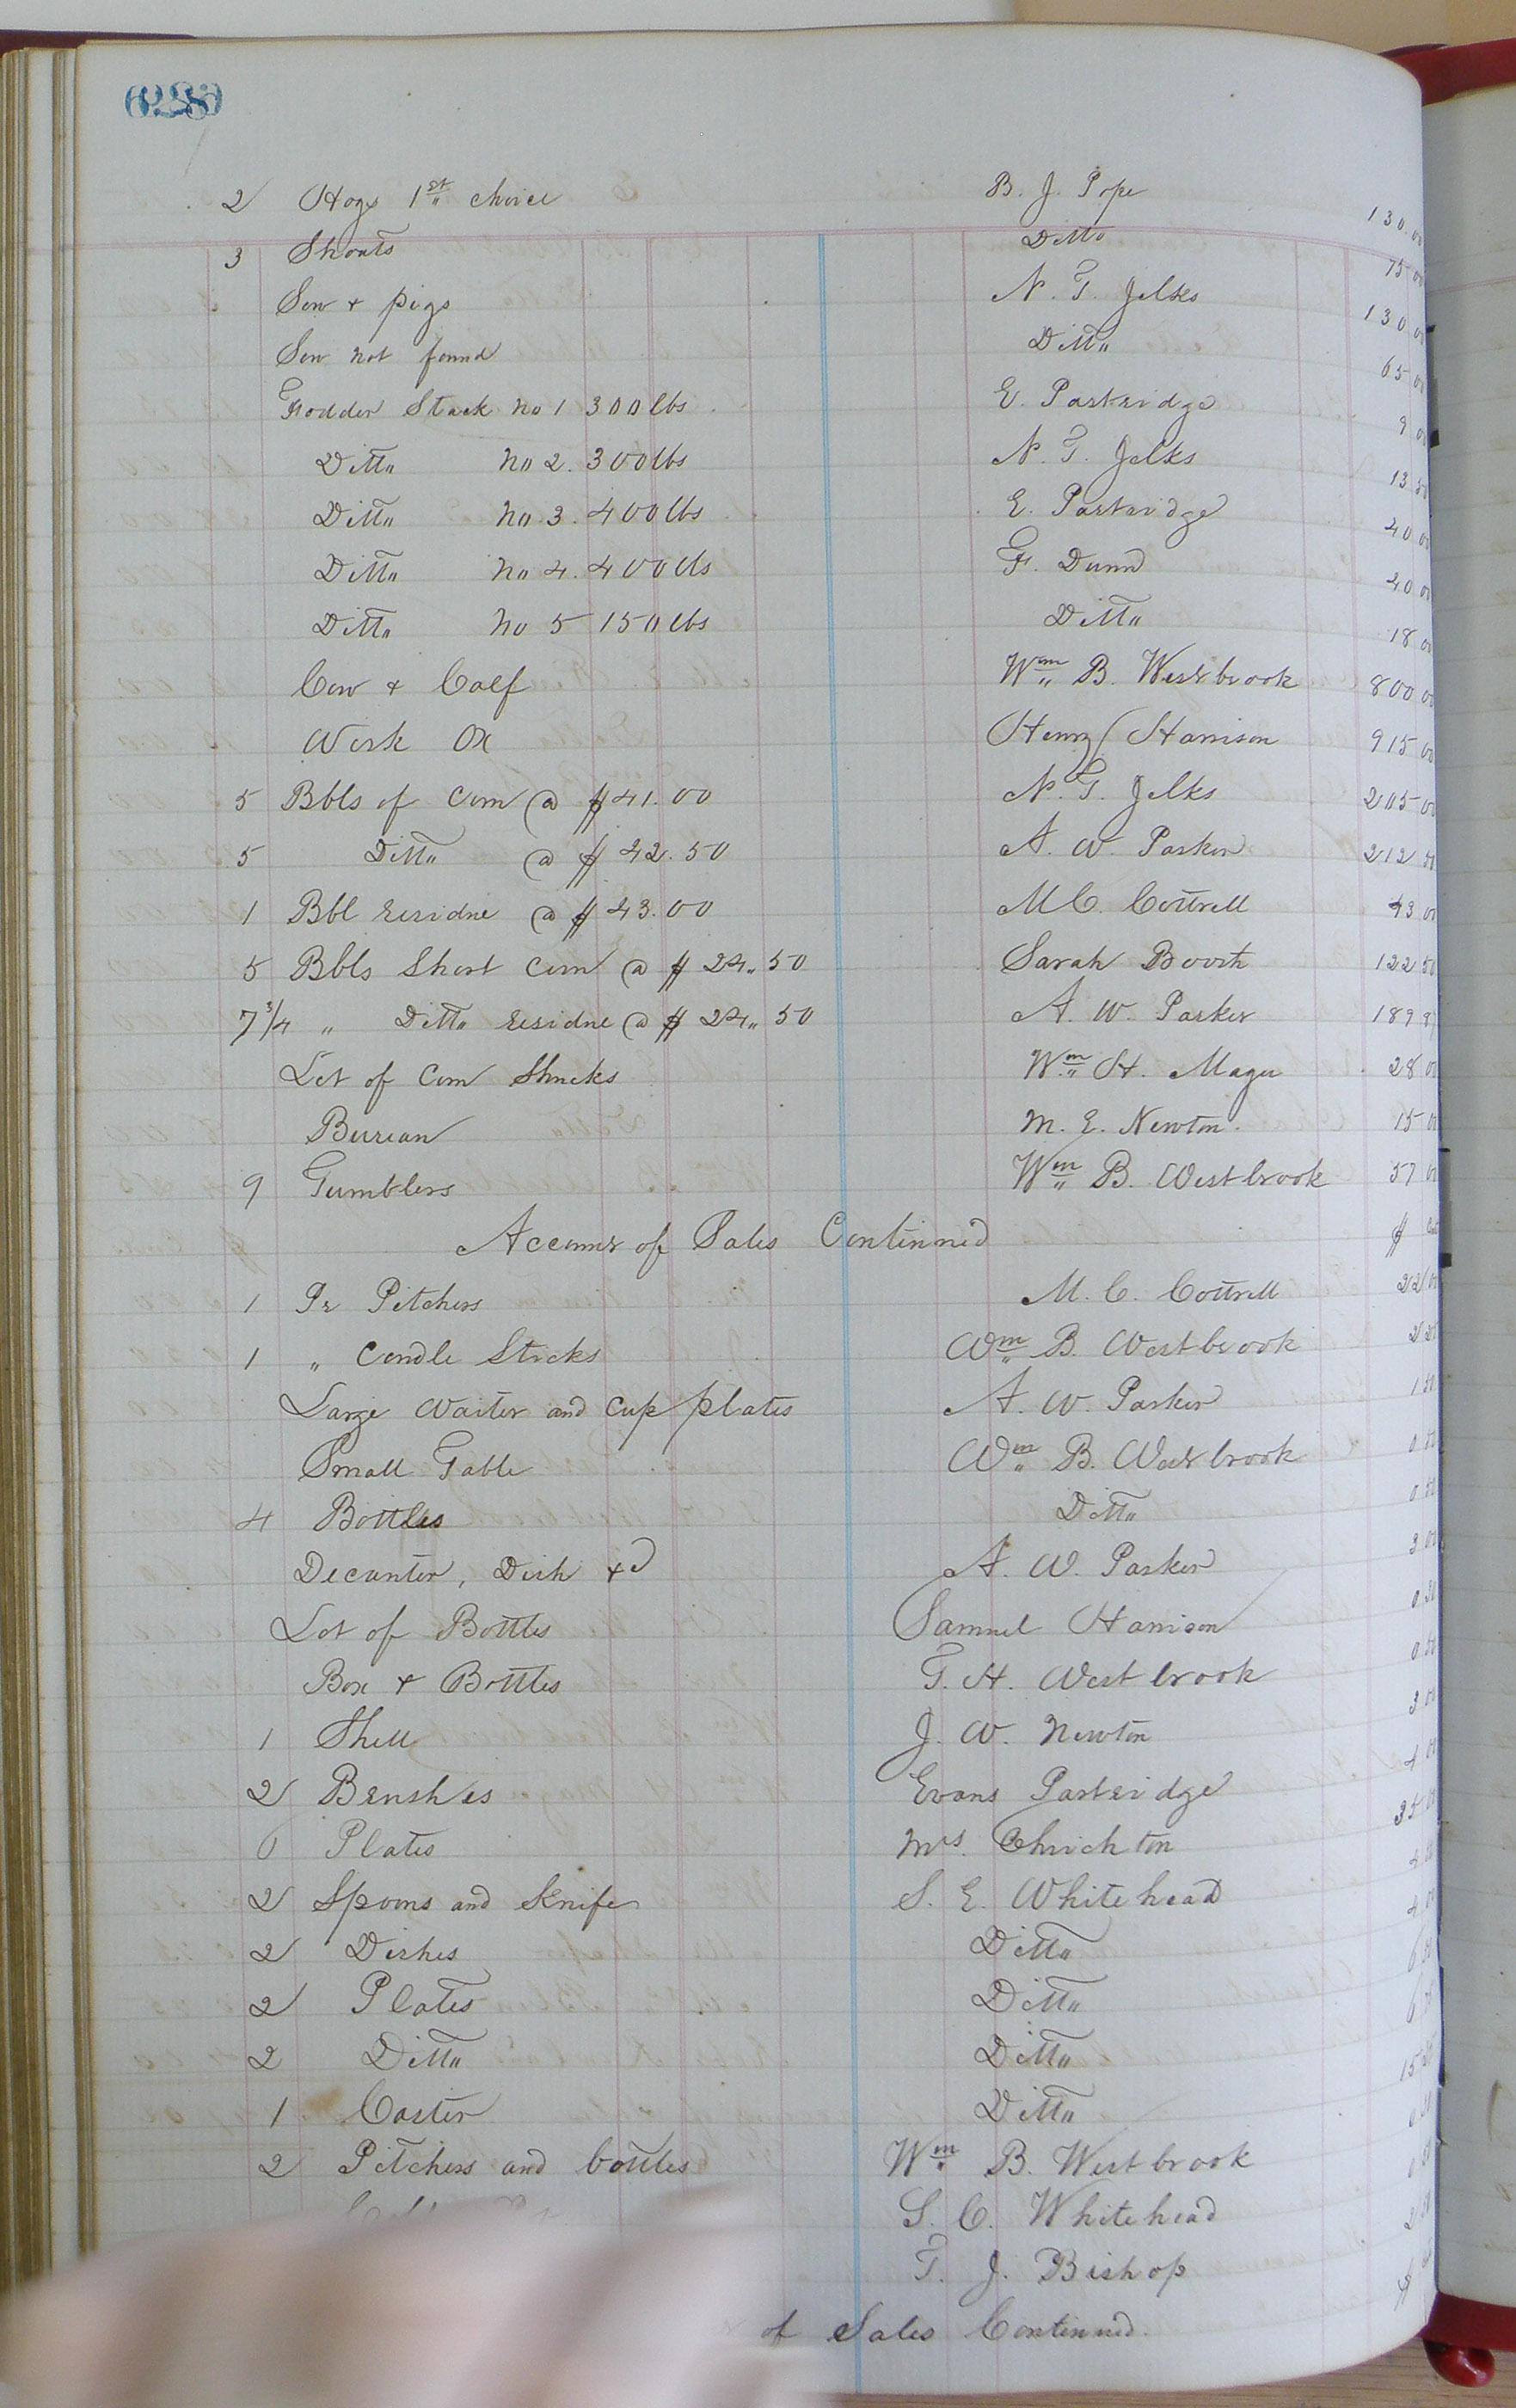 2 Hogs 1st choice B. J. Pope 130.00
3 Shoats Ditto 75 00
Sow + pigs N. T. Jelks 130 00
Sow not found Ditto 65 00
Fodder Stack no 1 300 lbs E. Partridge 9 00
Ditto no 2. 300 lbs N. T. Jelks 13 50
Ditto no 3. 400 lbs E. Partridge 40 00
Ditto no 4. 400 lbs F. Dunn 40 00
Ditto no 5 150 lbs Ditto 18 00
Cow + Calf Wm B. Westbrook 800 00
Work Ox Henry Harrison 915 00
5 Bbls of Corn @ $41.00 N. T. Jelks 205 00
5 Ditto @ $42.50 A. W. Parker 212 50
1 Bbl residue @ $43.00 M C. Cottrell 43 00
5 Bbls Short Corn @ $24.50 Sarah Booth 122 50
7 3/4 " Ditto residue @ $24.50 A. W. Parker 189 8
Lot of Corn Shucks Wm H. Magee 28 00
Bureau M. E. Newton. 15 00
9 Tumblers Wm B. Westbrook 57 00
Account of Sales Continued $
1 Pr Pitchers M. C. Cottrell 22 00
1 " Candle Sticks Wm B. Westbrook
Large Waiter and Cup plates A. W. Parker 1 50
Small Table Wm B. Westbrook 0 50
4 Bottles Ditto 0 50
Decanter, Dish +c A. W. Parker 3 00
Lot of Bottles Samuel Harrison 0 50
Box + Bottles T. H. Westbrook 0 50
1 Shell J. W. Newton 3 00
2 Brushes Evans Partridge 4 00
6 Plates Mrs. Chrichton 35 00
2 Spoons and Knife S. E. Whitehead
2 Dishes Ditto 4 00
2 Plates Ditto 6
2 Ditto Ditto 6
1 Caster Ditto 15
2 Pitchers and bottles Wm B. Westbrook
S. C. Whitehead
T. J. Bishop
of Sales Continued. $